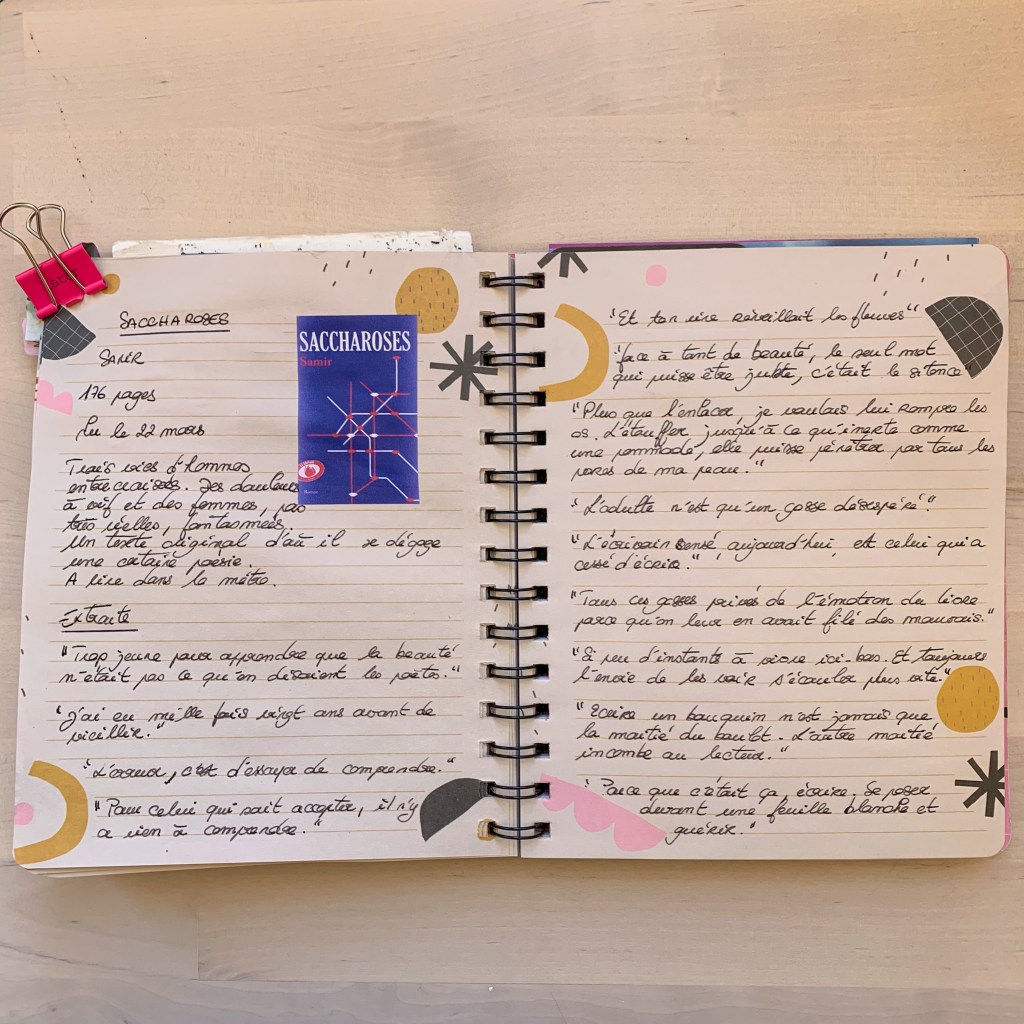 SACCHAROSES
SAMIR
176 pages
Lu le 22 mars
SACCHAROSES
Samir
Roman
Trois vies d'hommes
entrecroisées. Des douleurs
à vif et des femmes, pas
très réelles, fantasmées.
Un texte original d'où il se dégage
une certaine poésie.
A lire dans le métro.
Extraits
"Trop jeune pour apprendre que la beauté
n'était pas ce qu'en disaient les poètes."
"J'ai eu mille fois vingt ans avant de
vieillir."
"L'erreur, c'est d'essayer de comprendre."
"Pour celui qui sait accepter, il n'y
a rien à comprendre."
"Et ton rire réveillait les fleuves"
"face à tant de beauté, le seul mot
qui puisse être juste, c'était le silence"
"Plus que l'enlacer, je voulais lui rompre les
os. L'étouffer jusqu'à ce qu'inerte comme
une pommade, elle puisse pénétrer par tous les
pores de ma peau."
"L'adulte n'est qu'un gosse désespéré".
"L'écrivain sensé, aujourd'hui, est celui qui a
cessé d'écrire."
"Tous ces gosses privés de l'émotion du livre
parce qu'on leur en avait filé des mauvais."
"Si peu d'instants à vivre ici-bas. Et toujours
l'envie de les voir s'écouler plus vite."
"Ecrire un bouquin n'est jamais que
la moitié du boulot. L'autre moitié
incombe au lecteur."
"Parce que c'était ça, écrire. Se poser
devant une feuille blanche et
guérir."